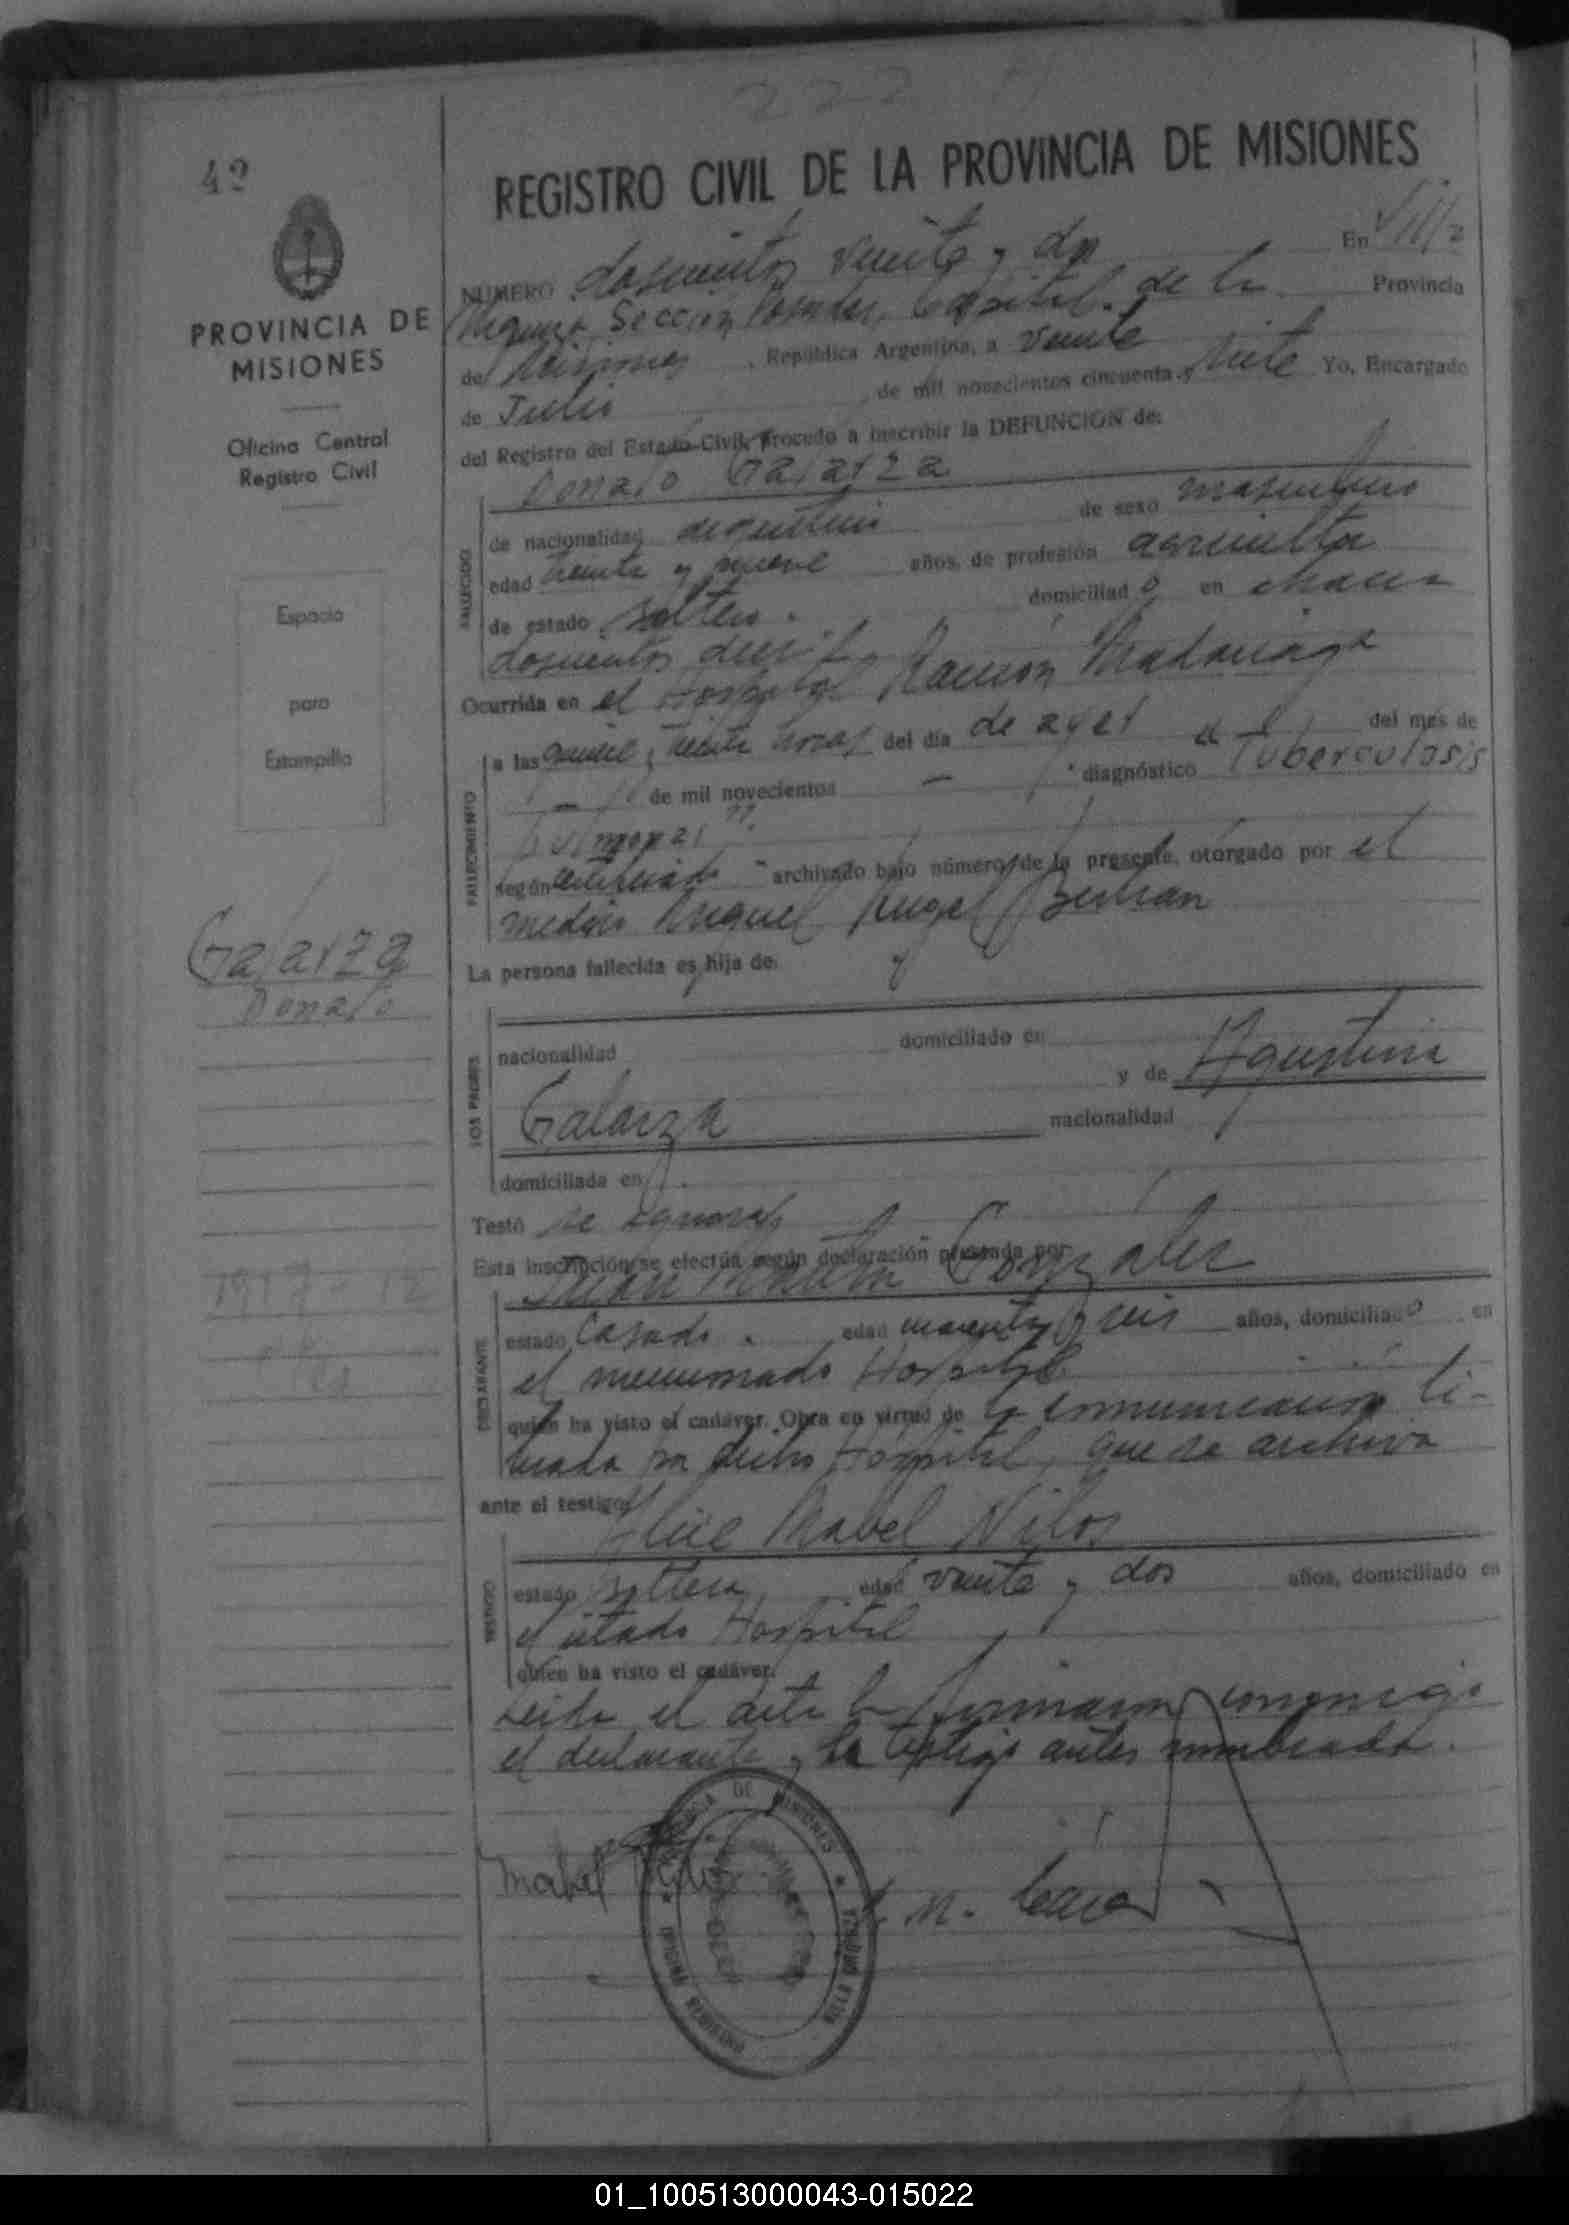 222
42
REGISTRO CIVIL DE LA PROVINCIA DE MISIONES
PROVINCIA DE
MISIONES
Oficina Central
Registro Civil
Espacio
para
Estampilla
Galarza
Donato
NUMERO doscientos veinte y dos En
Sección Posadas, Capital de la Provincia
de Misiones, República Argentina, a veinte
de Julio de mil novecientos cincuenta y siete Yo, Encargado
del Registro del Estado Civil, procedo a inscribir la DEFUNCION de:
Donato Galarza
FALLECIDO
de nacionalidad argentino de sexo masculino
edad treinta y nueve años, de profesión agricultor
de estado soltero. domiciliado en chacra
doscientos diez
Ocurrida en el Hospital Ramón Madariaga
FALLECIMIENTO
a las quince y treinta horas del día de ayer del mes de
— de mil novecientos — diagnóstico "Tuberculosis
Pulmonar".
según certificado archivado bajo número de la presente, otorgado por el
medico Miguel Angel Beltran
La persona fallecida es hija de:
LOS PADRES
nacionalidad domiciliado en
y de Agustina
Galarza nacionalidad
domiciliada en
Testó se ignora
Esta inscripción se efectúa según declaración prestada por
Juan González
DECLARANTE
estado casado. edad cuarenta y seis años, domiciliado en
el mencionado Hospital
quien ha visto el cadáver. Obra en virtud de la comunicación li-
brada por dicho Hospital, que se archiva
ante el testigo
Alice Mabel Vilos
TESTIGO
estado soltera edad veinte y dos años, domiciliado en
el citado Hospital
quien ha visto el cadáver.
Leida el acta la firmaron conmigo
el declarante y la testigo antes nombrada.
Mabel Vilos
PROVINCIA DE MISIONES
01_100513000043-015022